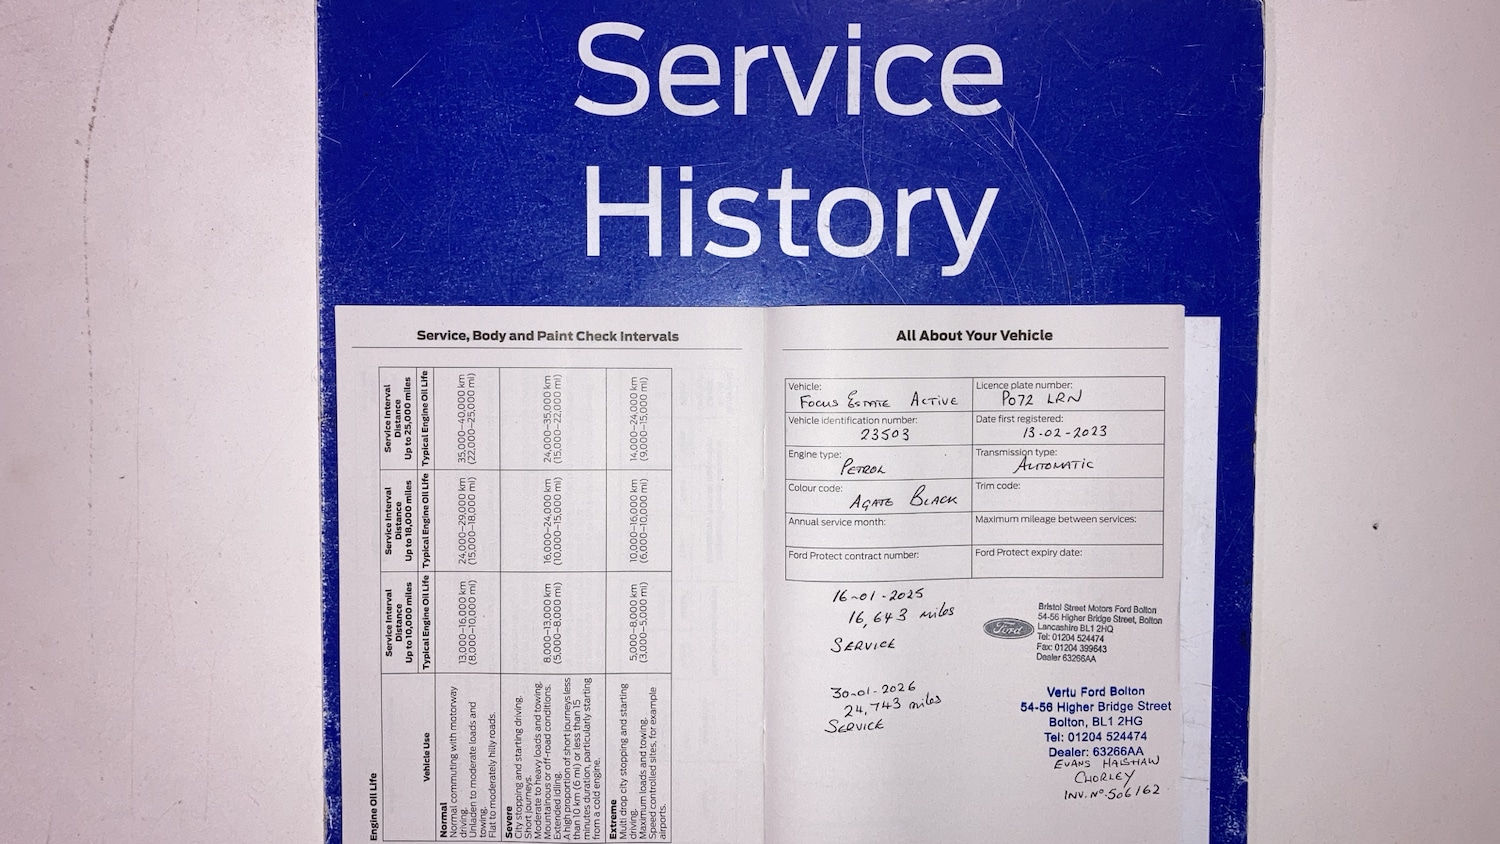 Service
History
Service, Body and Paint Check Intervals
Engine Oil Life
Vehicle Use
Service Interval
Distance
Up to 10,000 miles
Service Interval
Distance
Up to 18,000 miles
Service Interval
Distance
Up to 25,000 miles
Typical Engine Oil Life
Typical Engine Oil Life
Typical Engine Oil Life
Normal
Normal commuting with motorway
driving.
Unladen to moderate loads and
towing.
Flat to moderately hilly roads.
13,000–16,000 km
(8,000–10,000 mi)
24,000–29,000 km
(15,000–18,000 mi)
35,000–40,000 km
(22,000–25,000 mi)
Severe
City stopping and starting driving.
Short journeys.
Moderate to heavy loads and towing.
Mountainous or off-road conditions.
Extended idling.
A high proportion of short journeys less
than 10 km (6 mi) or less than 15
minutes duration, particularly starting
from a cold engine.
8,000–13,000 km
(5,000–8,000 mi)
16,000–24,000 km
(10,000–15,000 mi)
24,000–35,000 km
(15,000–22,000 mi)
Extreme
Multi drop city stopping and starting
driving.
Maximum loads and towing.
Speed controlled sites, for example
airports.
5,000–8,000 km
(3,000–5,000 mi)
10,000–16,000 km
(6,000–10,000 mi)
14,000–24,000 km
(9,000–15,000 mi)
All About Your Vehicle
Vehicle:
FOCUS ESTATE ACTIVE
Licence plate number:
PO72 LRN
Vehicle identification number:
23503
Date first registered:
13-02-2023
Engine type:
PETROL
Transmission type:
AUTOMATIC
Colour code:
AGATE BLACK
Trim code:
Annual service month:
Maximum mileage between services:
Ford Protect contract number:
Ford Protect expiry date:
16-01-2025
16,643 miles
SERVICE
Ford
Bristol Street Motors Ford Bolton
54-56 Higher Bridge Street, Bolton
Lancashire BL1 2HQ
Tel: 01204 524474
Fax: 01204 399643
Dealer 63266AA
30-01-2026
24,743 miles
SERVICE
Vertu Ford Bolton
54-56 Higher Bridge Street
Bolton, BL1 2HG
Tel: 01204 524474
Dealer: 63266AA
EVANS HALSHAW
CHORLEY
INV. Nº. 506162